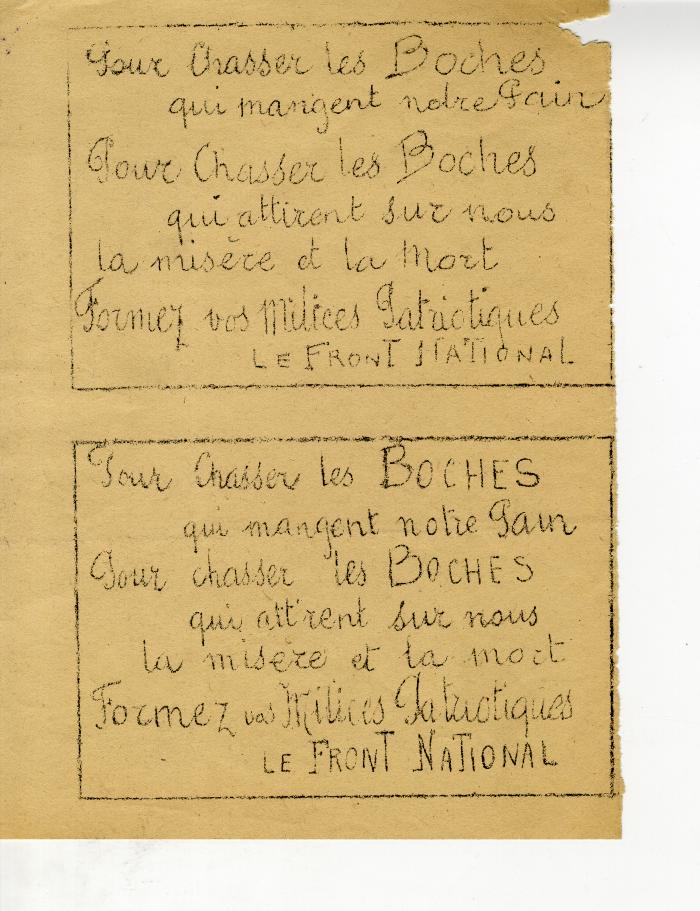 Pour Chasser les Boches
qui mangent notre Pain
Pour Chasser les Boches
qui attirent sur nous
la misère et la Mort
Formez vos Milices Patriotiques
LE FRONT NATIONAL
Pour Chasser les BOCHES
qui mangent notre Pain
Pour chasser les BOCHES
qui attirent sur nous
la misère et la mort
Formez vos Milices Patriotiques
LE FRONT NATIONAL